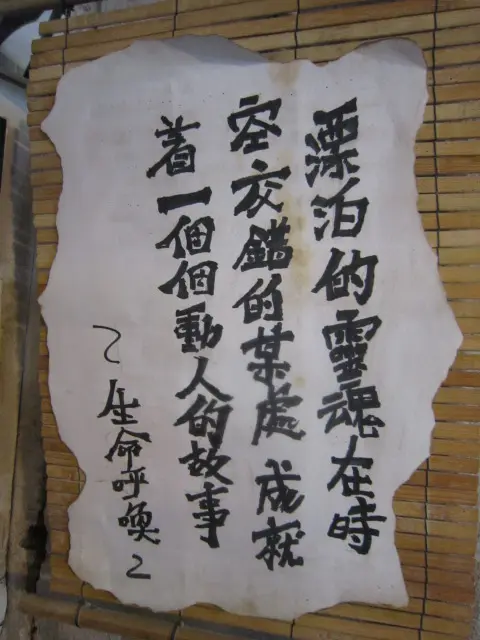 漂泊的靈魂在時
空交錯的某處 成就
着一個個動人的故事
~生命呼喚~